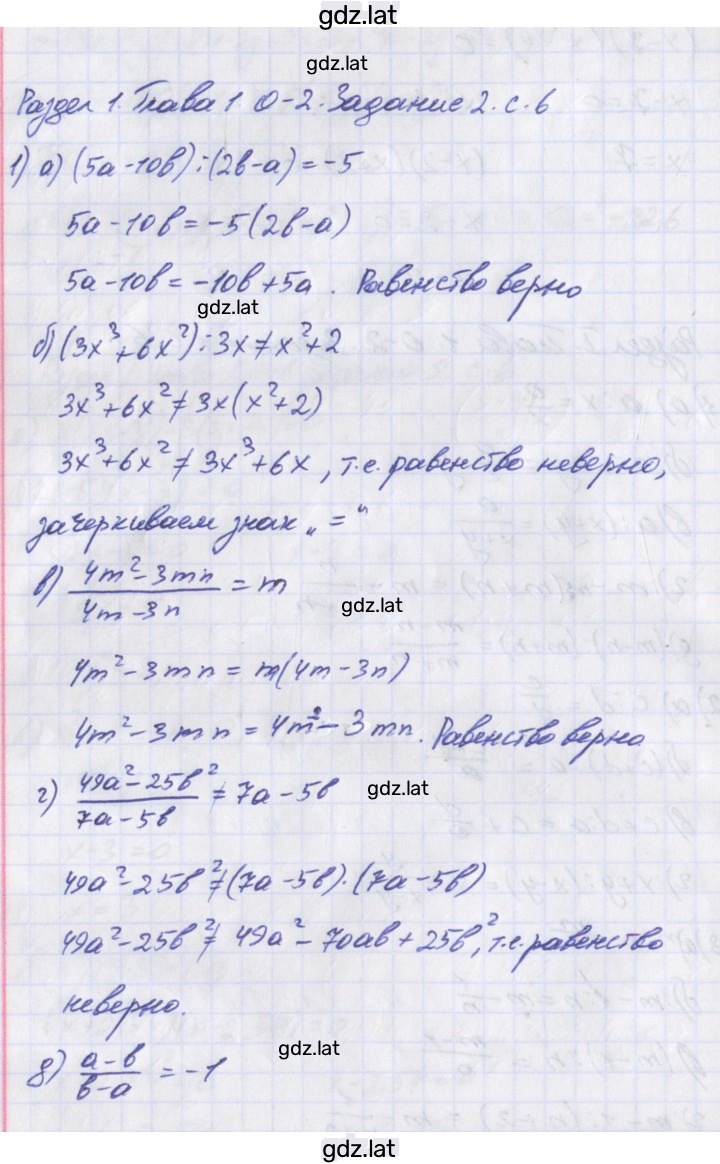 gdz.lat
gdz.lat
Раздел 1. Глава 1. О-2. Задание 2. с. 6
1) а) (5a-10b):(2b-a)=-5
5a-10b=-5(2b-a)
5a-10b=-10b+5a. Равенство верно
gdz.lat
б) (3x³+6x²):3x≠x²+2
3x³+6x²≠3x(x²+2)
3x³+6x²≠3x³+6x, т.е. равенство неверно,
зачеркиваем знак „="
в) (4m²-3mn)/(4m-3n)=m
gdz.lat
4m²-3mn=m(4m-3n)
4m²-3mn=4m²-3mn. Равенство верно
г) (49a²-25b²)/(7a-5b)≠7a-5b
gdz.lat
49a²-25b²≠(7a-5b)·(7a-5b)
49a²-25b²≠49a²-70ab+25b², т.е. равенство
неверно.
gdz.lat
д) (a-b)/(b-a)=-1
gdz.lat